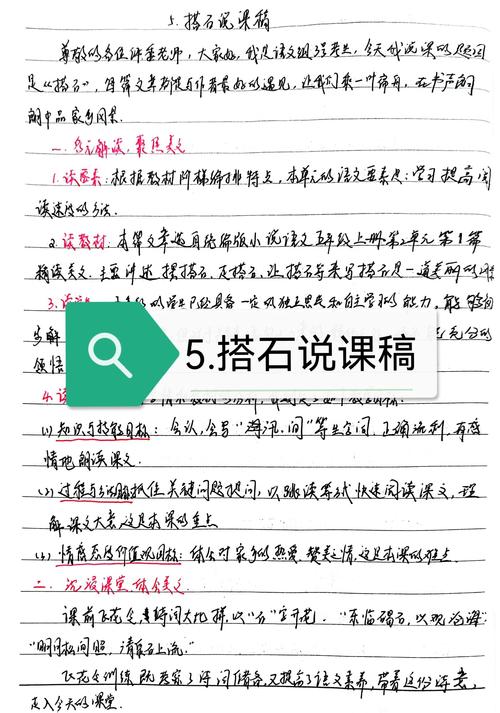 5. 搭石说课稿
尊敬的各位评委老师,大家好,我是语文组 号考生,今天我说课的题目
是《搭石》,
朗中品家乡风景.
一. 多元解读,聚焦美文
1. 读要素: 根据教材阶梯编排特点,本单元的语文要素是: 学习提高阅
读速度的方法.
2. 读教材: 本篇文章选自统编版小学语文五年级上册第2单元第1篇
精读美文. 主要讲述摆搭石、走搭石、让搭石与来写搭石是一道美丽的风
3. 具备一定的独立思考和自主学习的能力,能够
5.搭石说课稿
领悟
4. 读
(1) 知识与技能目标: 会认,会写“ 汛、间”等生字词. 正确流利,有感
情地朗读课文.
(2) 过程与 抓住关键问题提问,以跳读等式快速阅读课文,理
解课文大意,这是本课的重点
情感态度价值观目标: 体会对家乡的热爱、赞美之情,这是本课的难点
二. 沉浸课堂,体会美文
课前飞花令, 诗词大比拼,以“石”字开花. “东临碣石,以观沧海”
“明月松间照,清泉石上流.”
飞花令训练既 了诗词储备,又提高了语文素养,带着这份诗意,
走入今天的课堂.